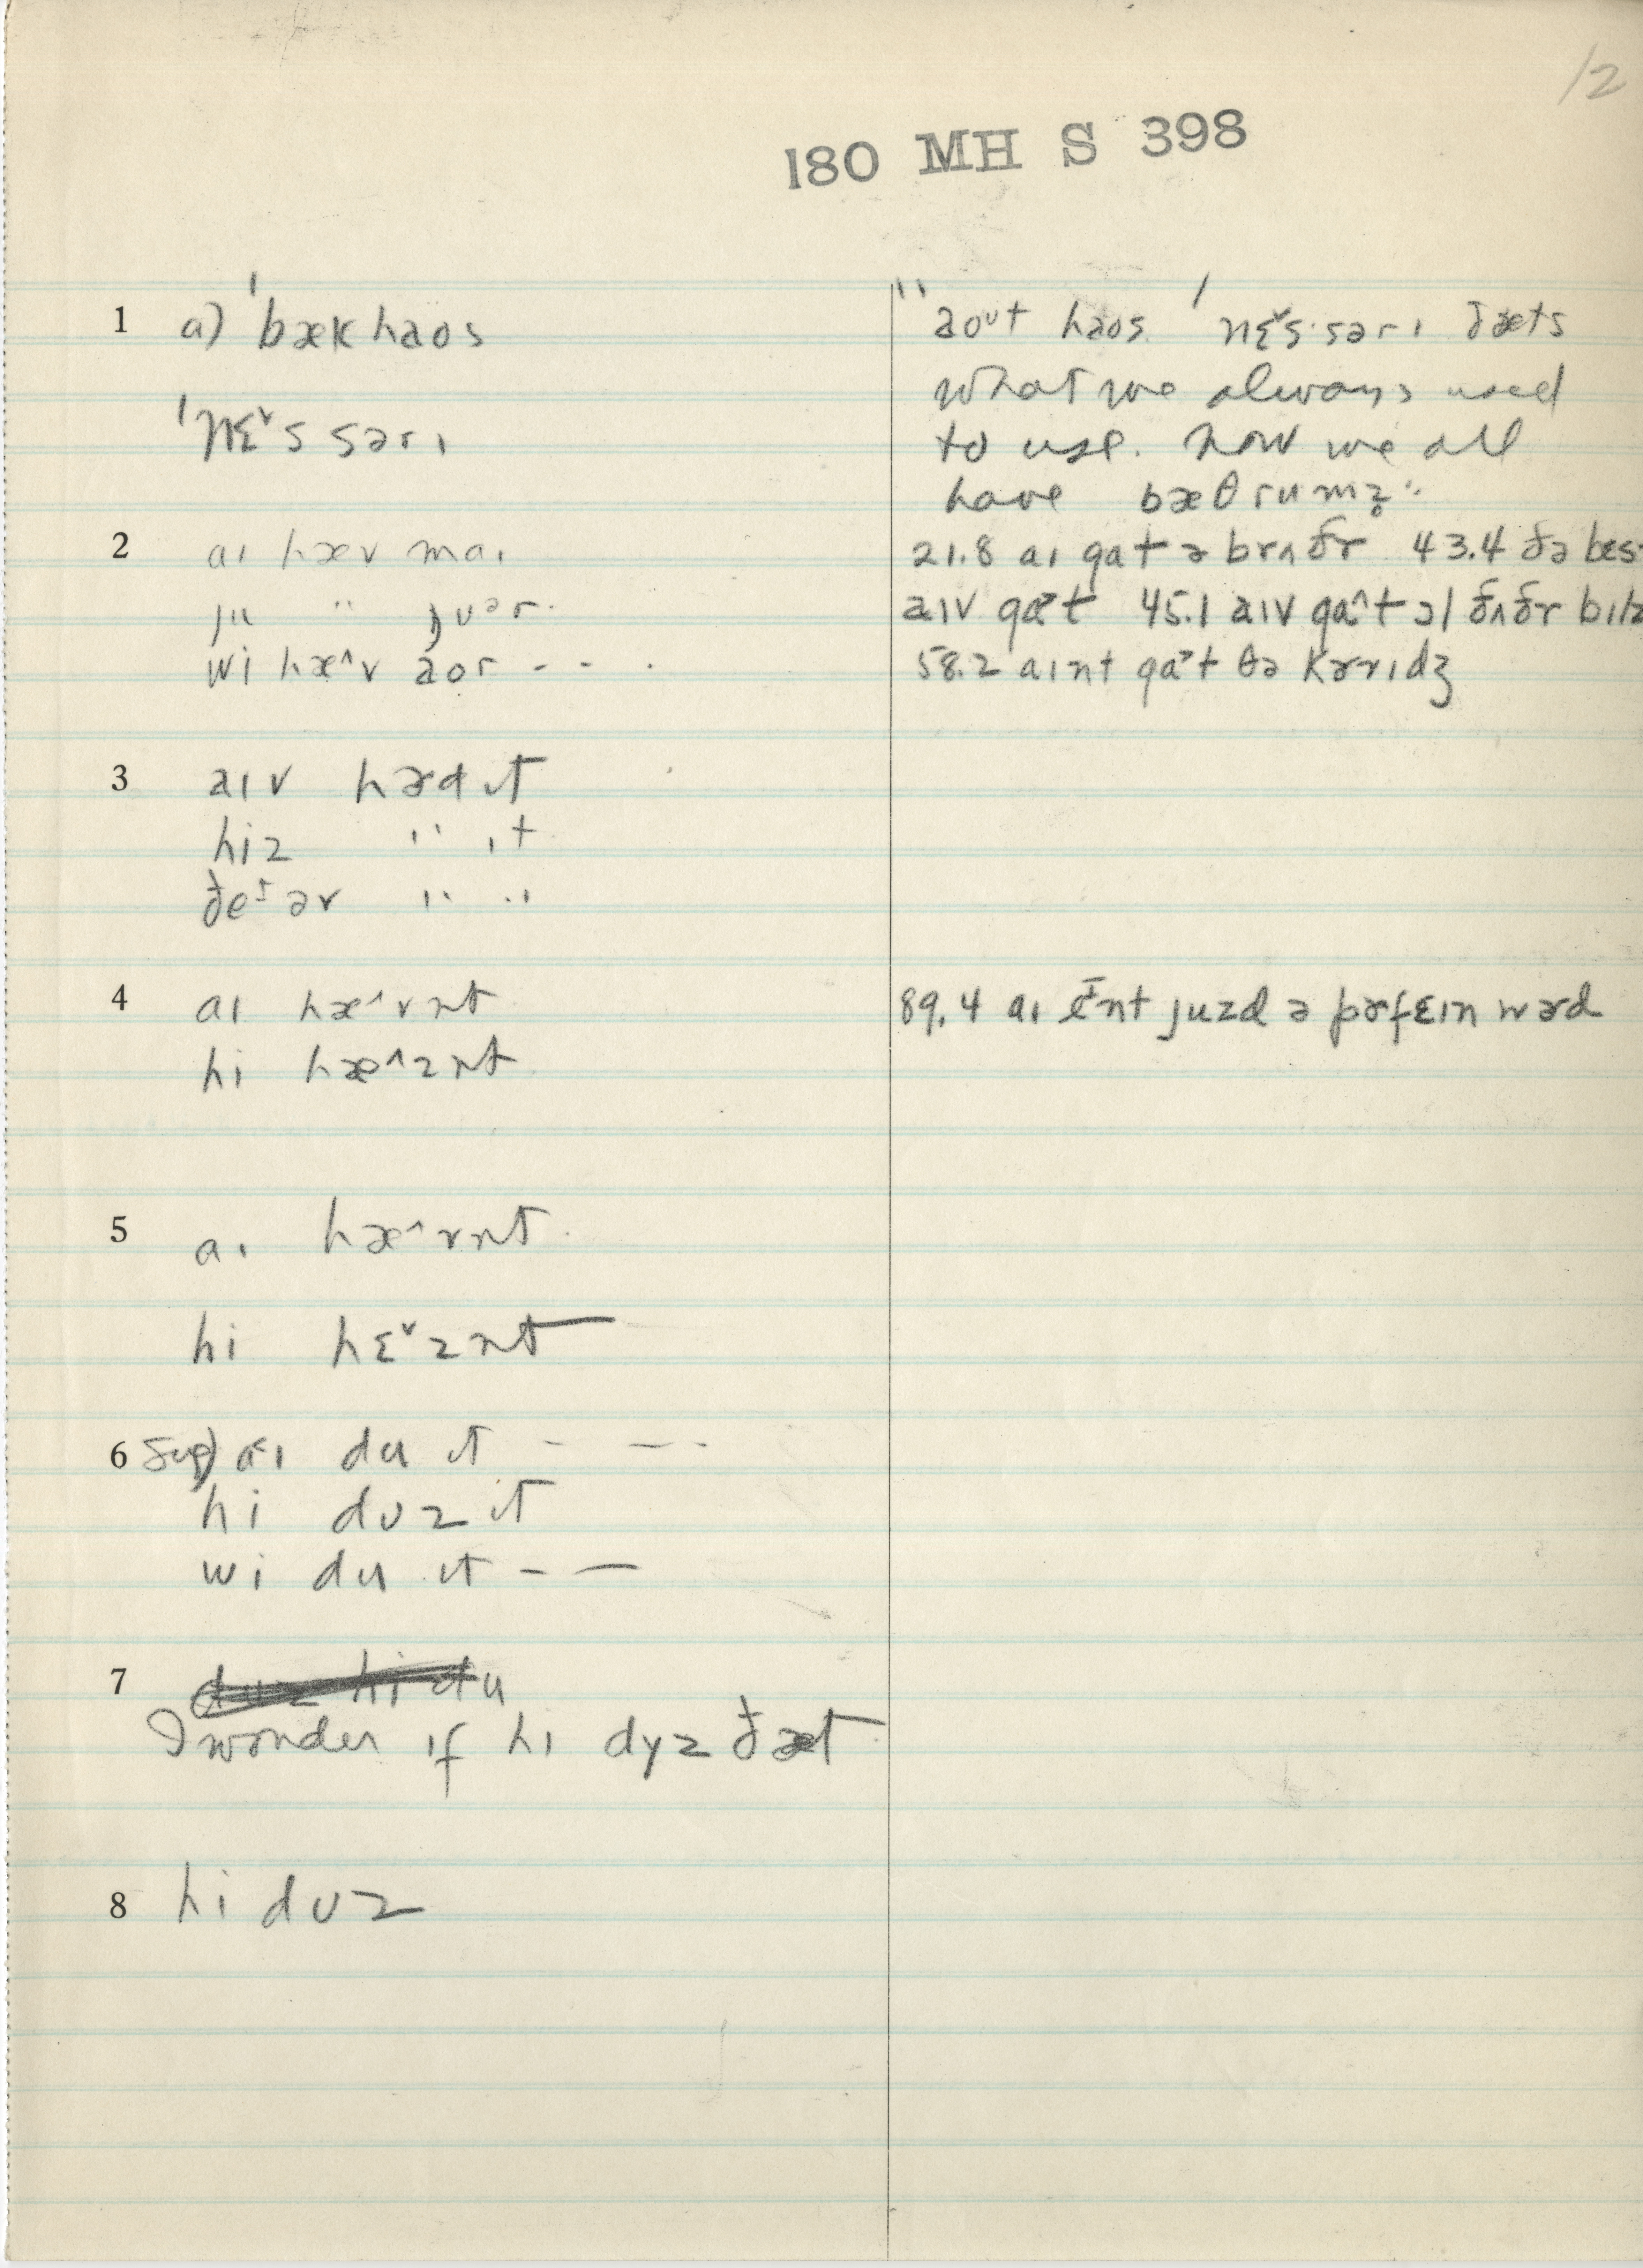 12
180 MH S 398
1 a) ˈbækhaos
ˈnɛˇssərɪ
"aoᴜt haos ˈnɛˇs·sərɪ ðæts
what we always used
to use. Now we all
have bæθrumz̥"
2 aɪ hæv maɪ
ju " jʊər
wi hæ^v aor - - .
21.8 aɪ gat ə brʌðr 43.4 ðə bes
aɪv ga˃t 45.1 aɪv ga^t ɔl ðʌðr bɪlz
58.2 aɪnt ga˃t θə kɚrɪdʒ
3 aɪv hɚd ɪt
hiz " ɪt
ðeɪ əv " "
4 aɪ hæ^vnt
hi hæ^znt
89.4 aɪ eɪnt juzd ə pɚfɛɪn wɚd
5 aɪ hæ^vnt
hi hɛˇznt
6 sug) a˂ɪ du ɪt - - -
hi dʊz ɪt
wi du ɪt - -
7 duz hi du
I wonder if hi dyz ðæt
8 hi dʊz